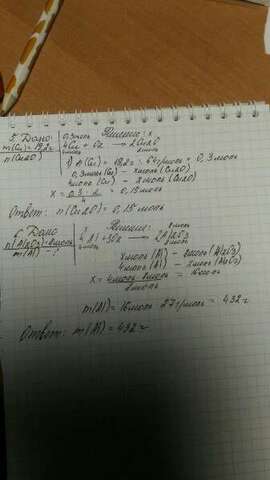 5. Дано: Решение:
m(Cu)=19,2г 0,3моль x
n(Cu2O) 4Cu + O2 → 2Cu2O
4моль 2моль
1) n(Cu) = 19,2г : 64г/моль = 0,3моль
0,3моль(Cu) – xмоль(Cu2O)
4моль(Cu) – 2моль(Cu2O)
x = 0,3 · 2 / 4 = 0,15моль
Ответ: n(Cu2O) = 0,15 моль
6. Дано Решение: 8моль
n(Al2O3)=8моль 4Al + 3O2 → 2Al2O3
m(Al) - ? 2моль
xмоль(Al) – 8моль(Al2O3)
4моль(Al) – 2моль(Al2O3)
x = 4моль · 8моль / 2моль = 16моль
m(Al) = 16моль · 27г/моль = 432г
Ответ: m(Al) = 432г